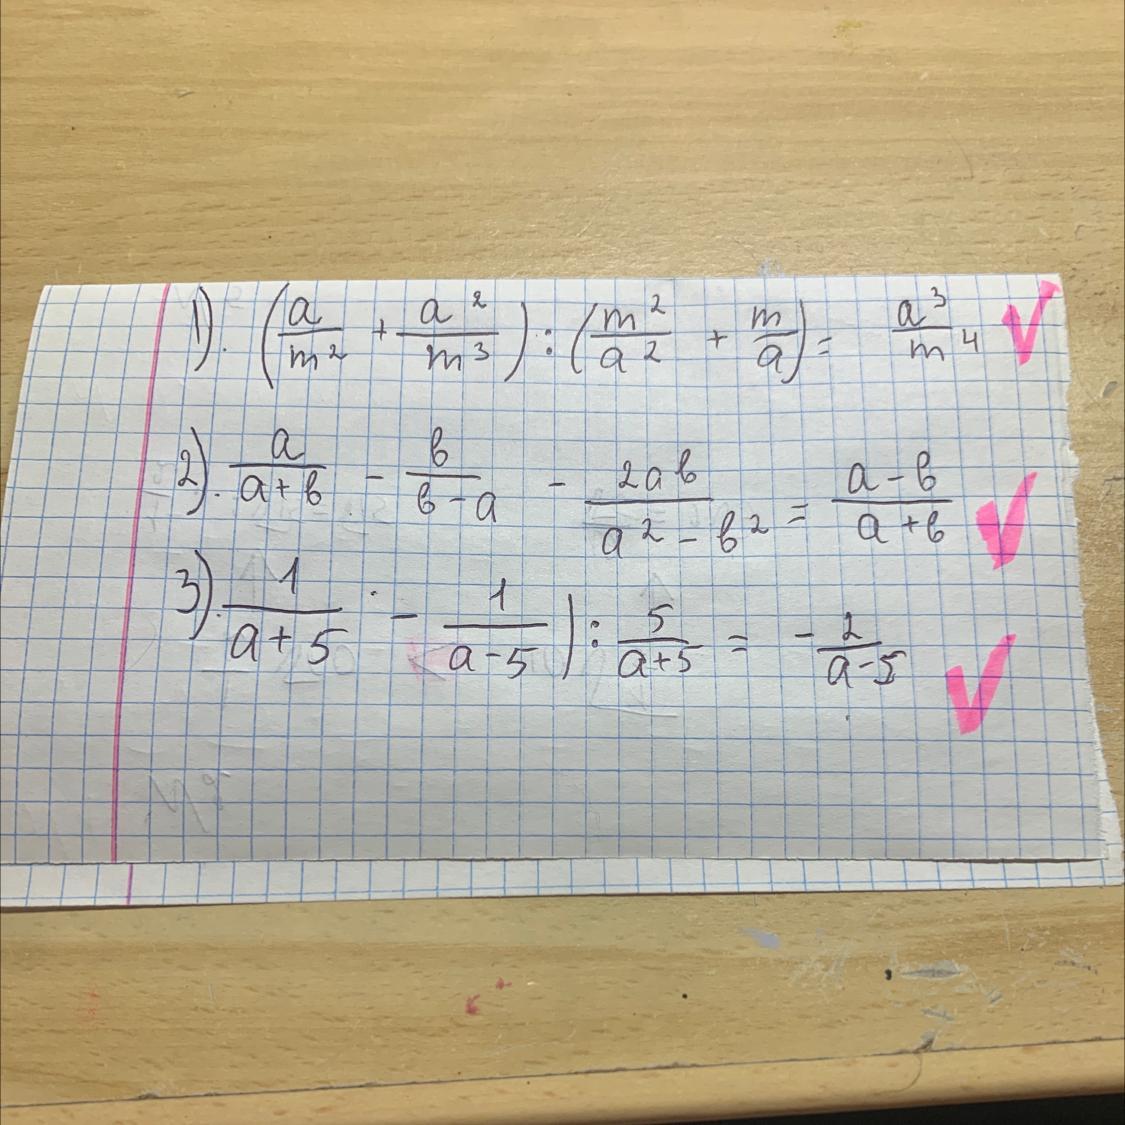 1). (a/m² + a²/m³) : (m²/a² + m/a) = a³/m⁴
2). a/(a+в) - в/(в-a) - 2aв/(a²-в²) = (a-в)/(a+в)
3). 1/(a+5) - 1/(a-5)) : 5/(a+5) = -2/(a-5)